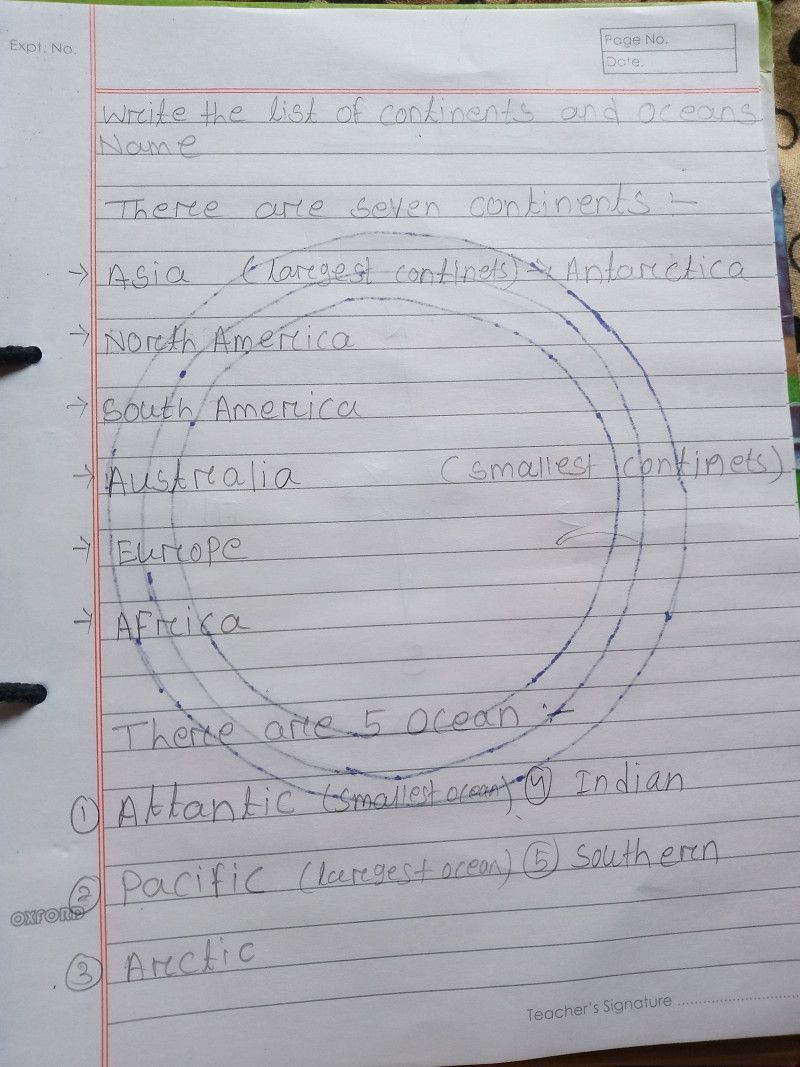 Expt. No.
Page No.
Date.
Write the list of continents and oceans
Name
There are seven continents :-
→ Asia (largest continets) → Antarctica
→ North America
→ South America
→ Australia (smallest continets)
→ Europe
→ Africa
There are 5 ocean :-
① Attantic (smallest ocean) ④ Indian
② Pacific (largest ocean) ⑤ Southern
OXFORD
③ Arctic
Teacher's Signature